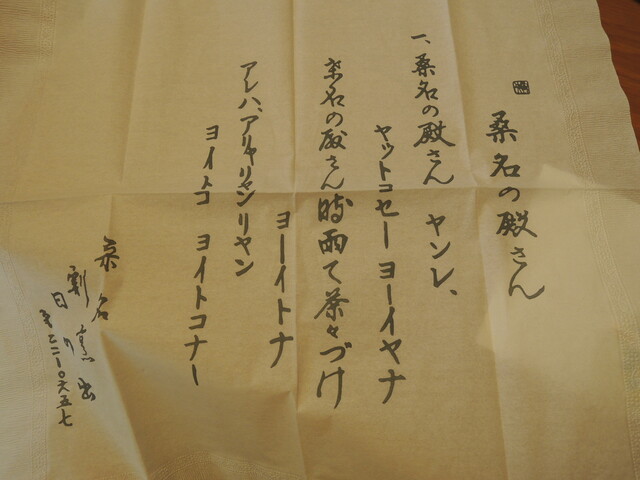 桑名の殿さん
一、桑名の殿さん ヤンレ、
ヤットコセー ヨーイヤナ
桑名の殿さん時雨で茶々づけ
ヨーイトナ
アレハ、アリャリャンリャン
ヨイトコ ヨイトコナー
桑名
割烹
日の出
二一〇六五七